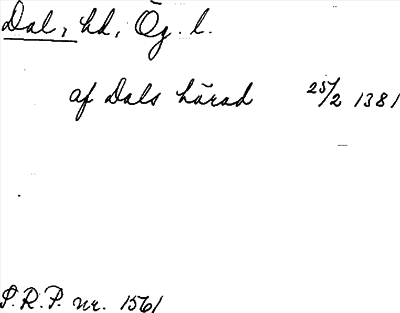 Dal, hd, Ög. l.
af Dals härad 25/2 1381
S.R.P. nr. 1561